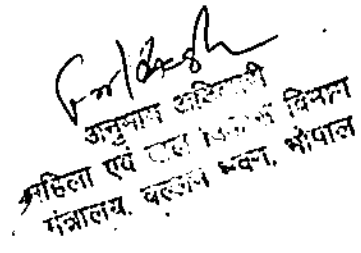 अनुभाग अधिकारी
महिला एवं बाल विकास विभाग
मंत्रालय, वल्लभ भवन, भोपाल